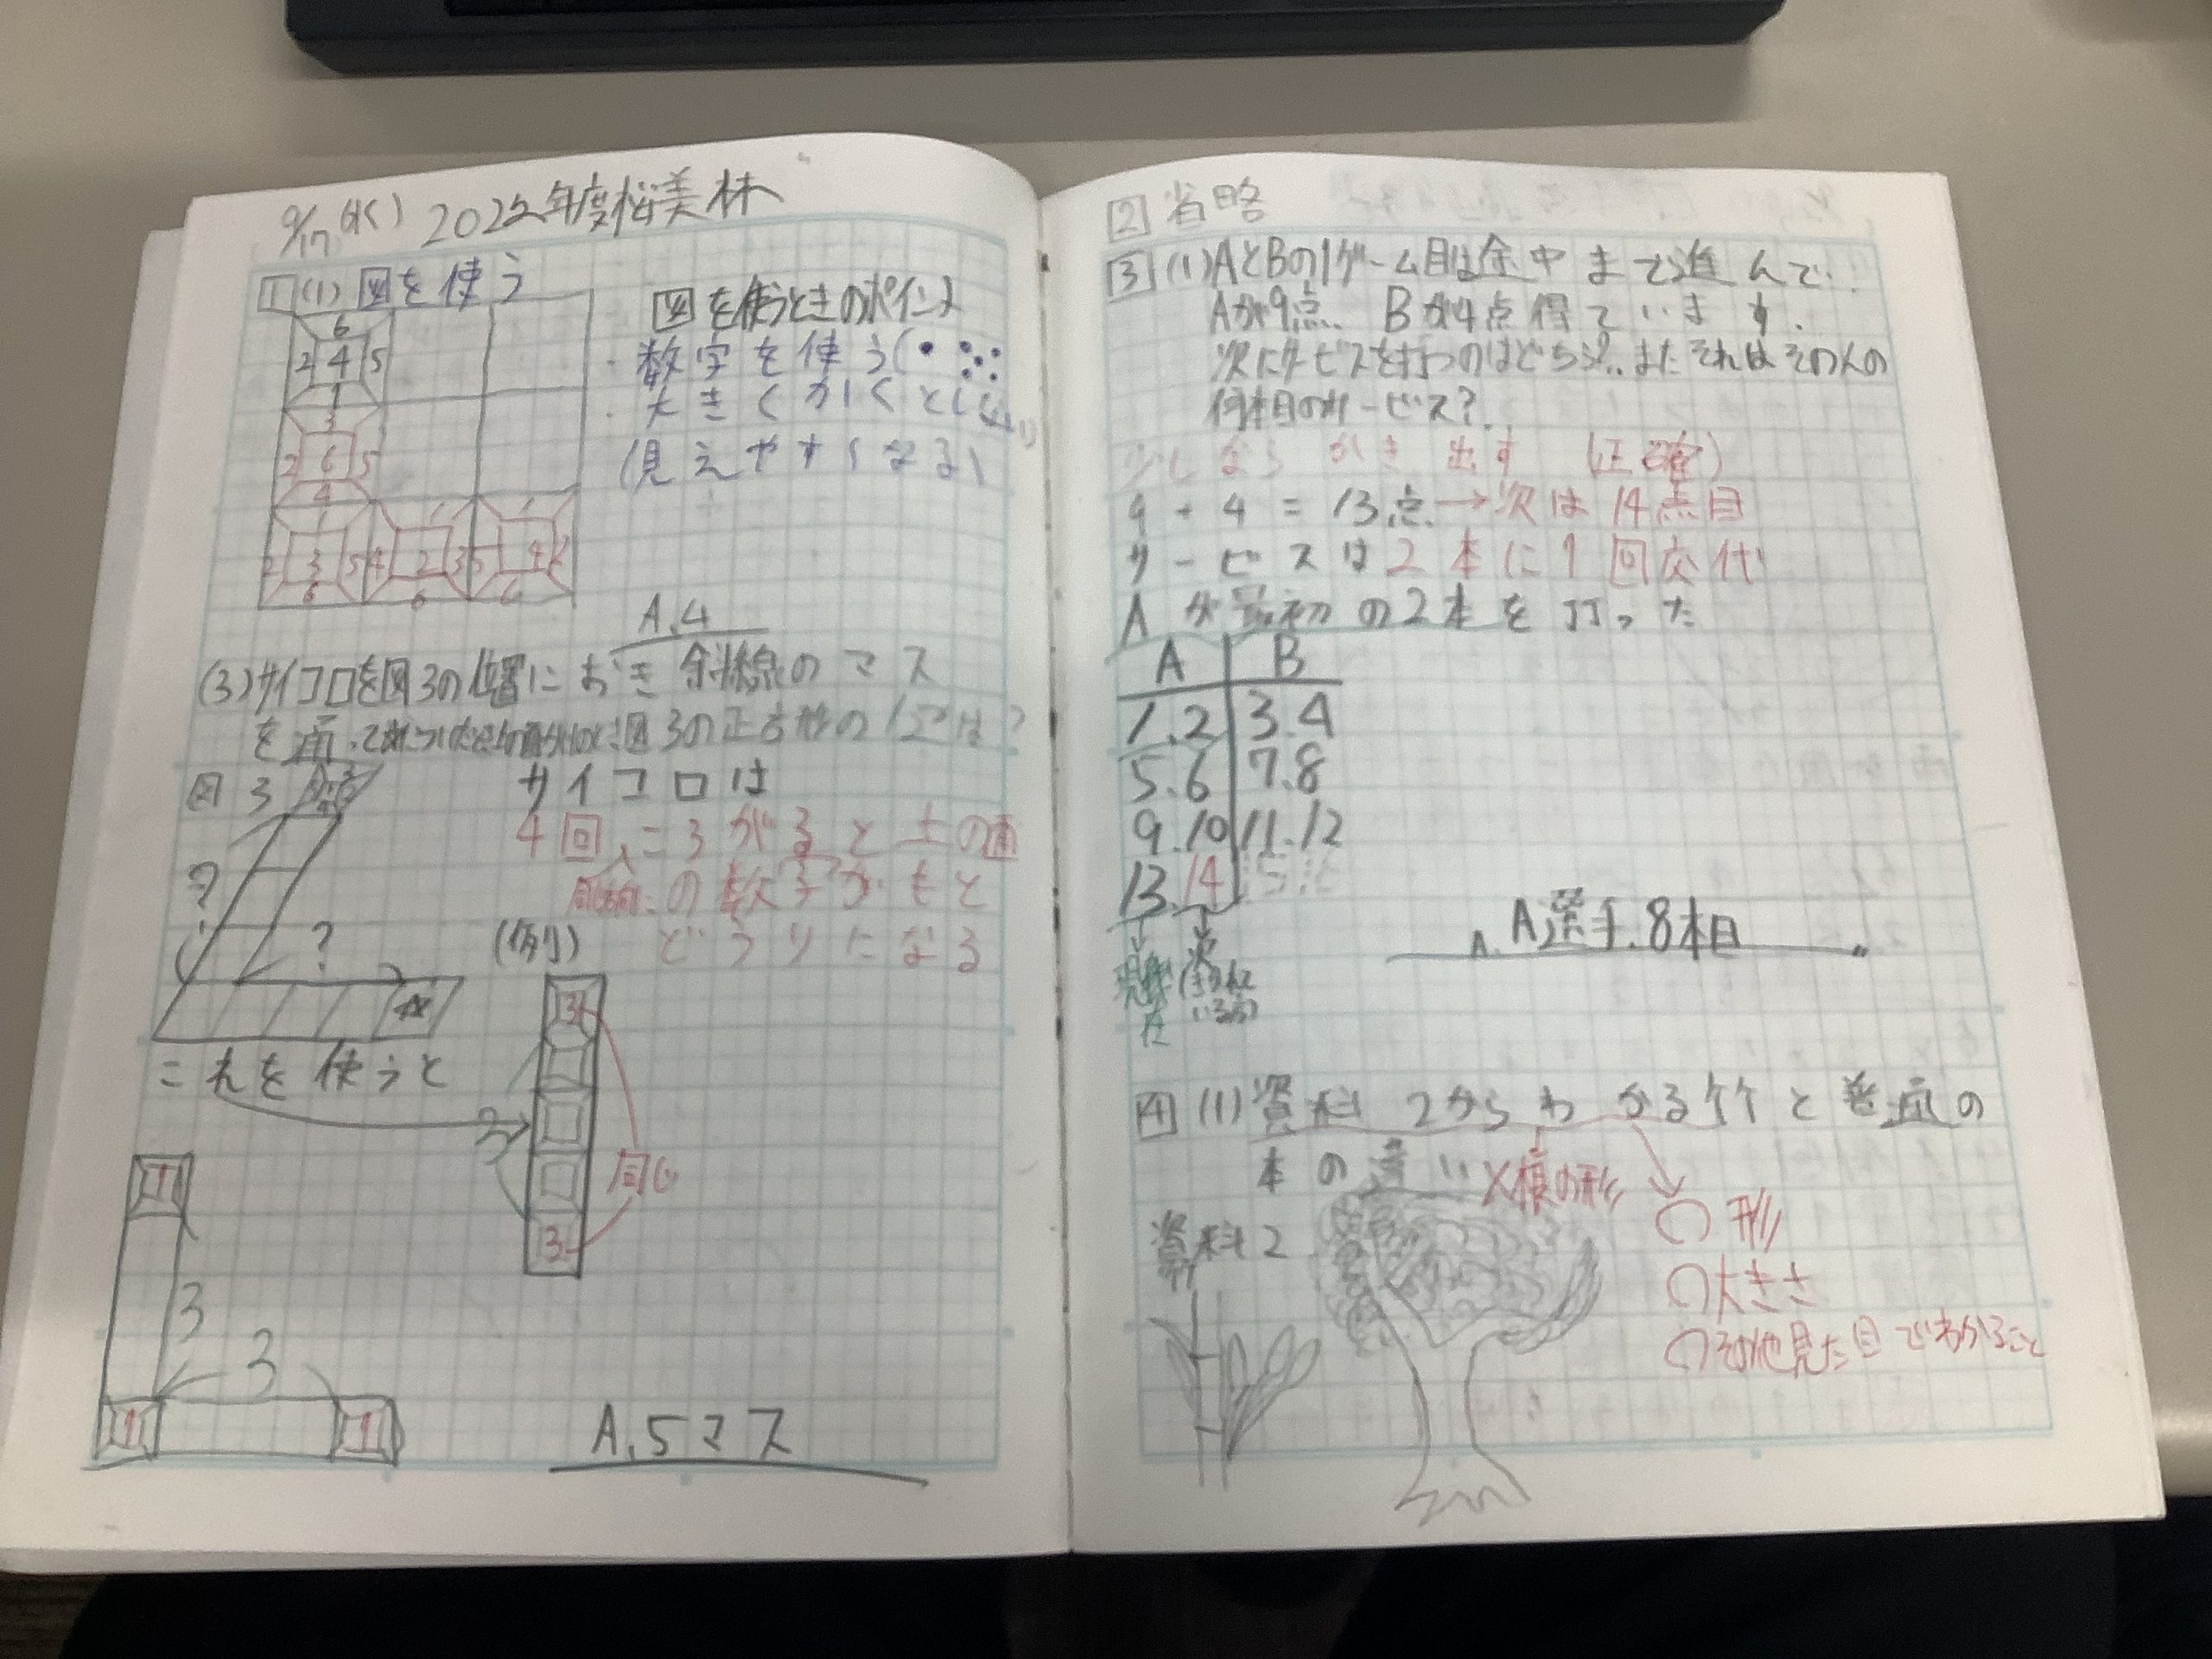 9/17(水) 2022年度桜美林
1 (1)図を使う
図を使うときのポイント
・数字を使う(
・大きくかくとよい
(見えやすくなる)
6
2 4 5
1
3
2 6 5
4
1 1 1
2 3 5 4 2 3 5 4 2
6 6 6
A.4
(3)サイコロを図3の位置におき斜線のマス
を通って 図3の正方形の1辺は?
図3
?
?
サイコロは
4回ころがると上の面
同じ方向にの数字がもと
どうりになる
(例)
3
3
3
同じ
これを使うと
1
3
3
1 1
A.5マス
2 省略
3 (1)AとBの1ゲーム目は途中まで進んで、
Aが9点、Bが4点得ています。
次にサービスを打つのはどちら?またそれはその人の
何本目のサービス?
少しならかき出す (正確)
9+4=13点→次は14点目
サービスは2本に1回交代
Aが最初の2本を打った
A B
1.2 3.4
5.6 7.8
9.10 11.12
13.14 15.16
次
A. A選手.8本目
4 (1)資料2からわかる竹と普通の
木の違い
×根の形
○形
○大きさ
○その他見た目でわかること
資料2